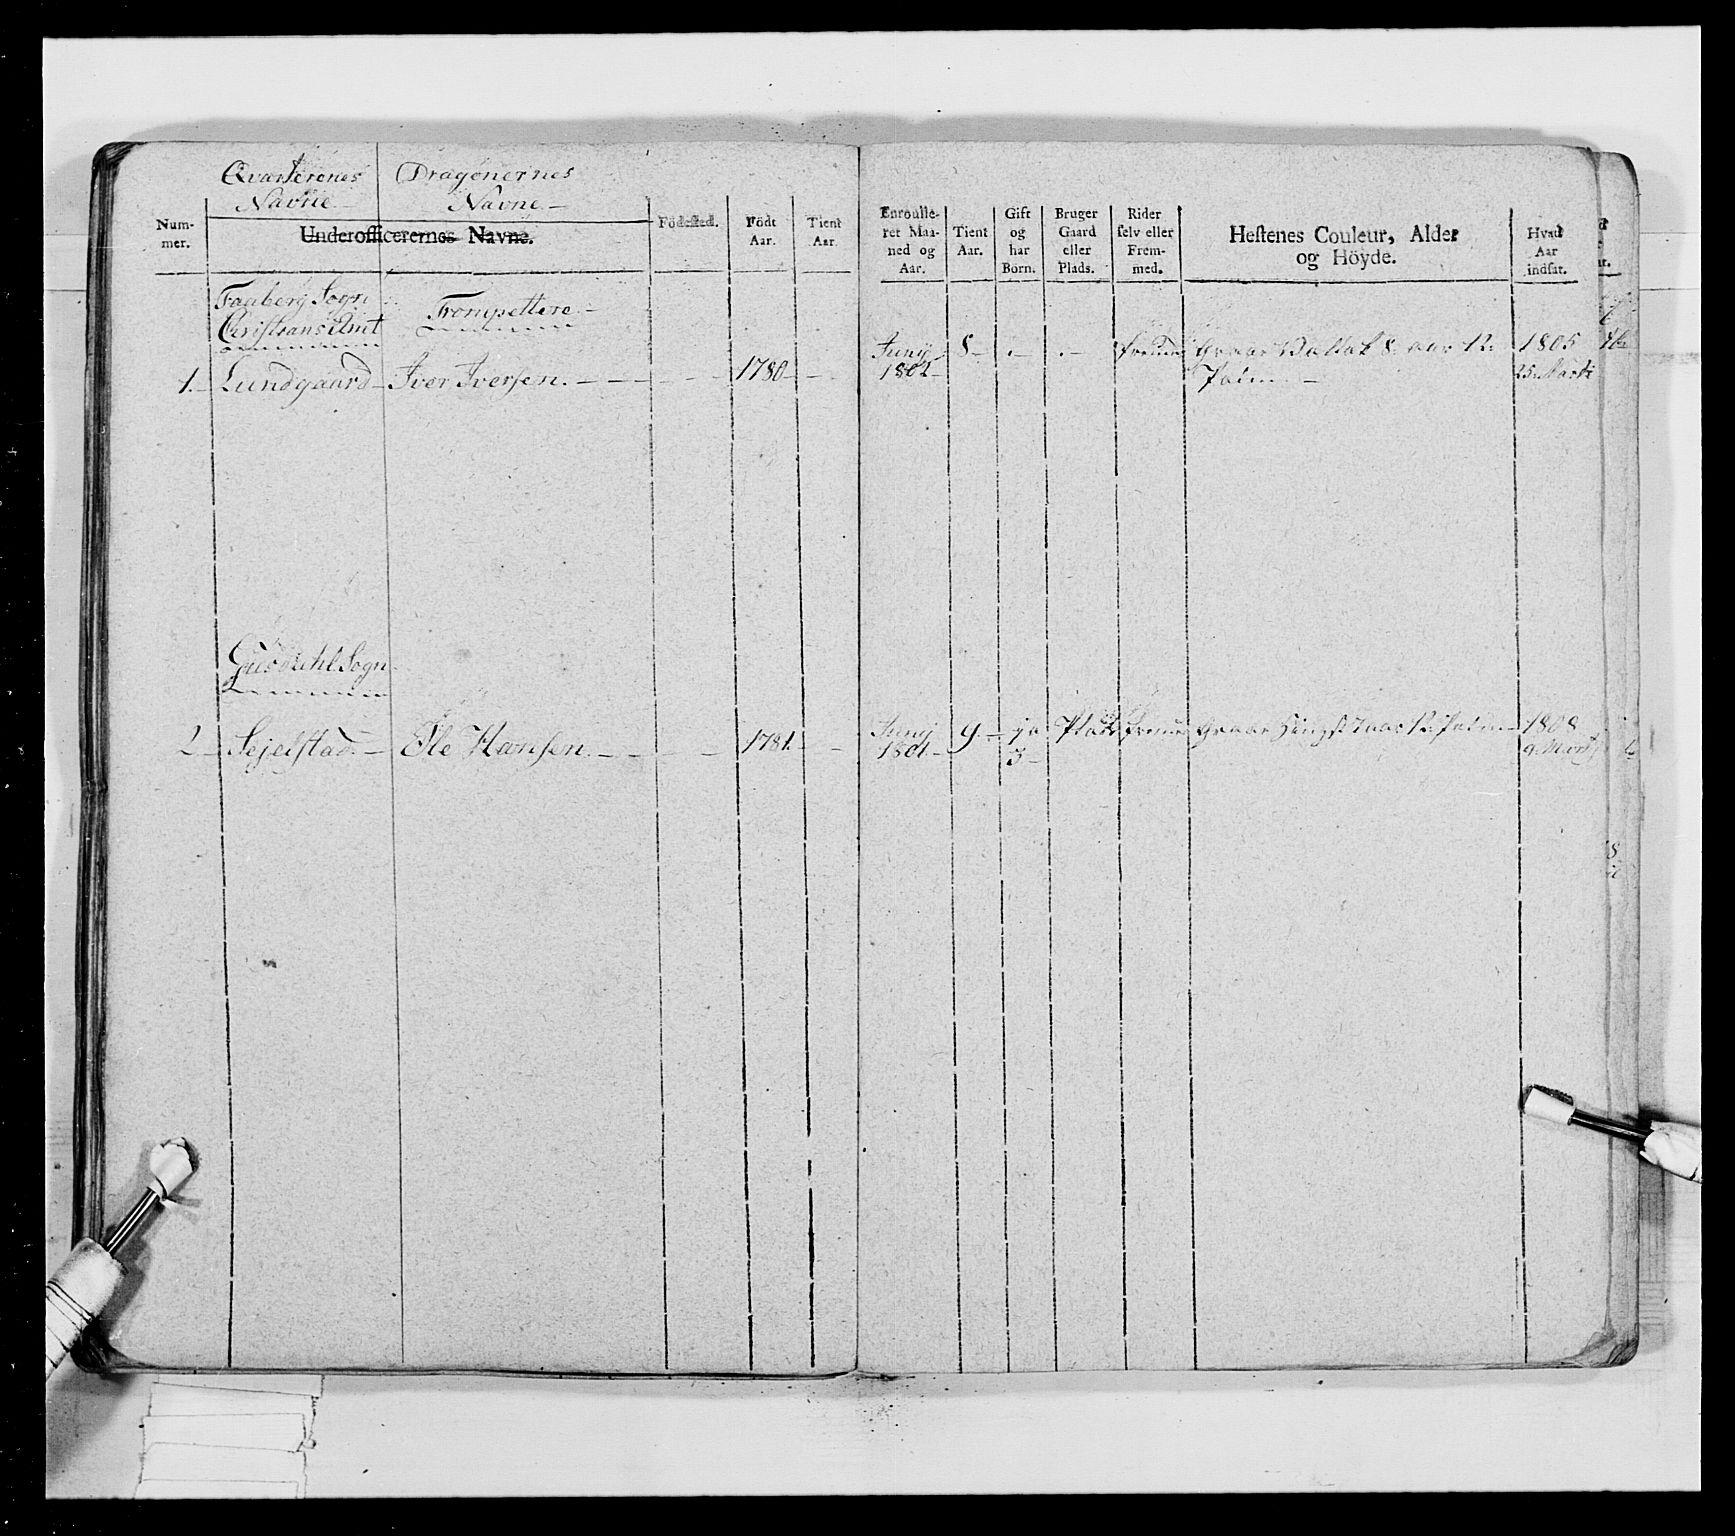 Qvarterenes Navne
Dragonernes Navne
Num-
mer.
Underofficerernes Navne.
Födested.
Födt
Aar.
Tient
Aar.
Enroulle-
ret Maa-
ned og
Aar.
Tient
Aar.
Gift
og
har
Börn.
Bruger
Gaard
eller
Plads.
Rider
selv eller
Frem-
med.
Hestenes Couleur, Alder
og Höyde.
Hvad
Aar
indsat.
Faaberg Sogn
Christians Amt
Trompettere
1. Lundgaard Iver Iversen. 1780 Junÿ 1802 8 fremmed Graae Vallak 8 aar 12 1805
25 Marti
Gusdahl Sogn
2 Sejelstad Ole Hansen. 1781. Junÿ 1801 9 ja 3 Plads fremmed Graae Hingst 7 aar 12 1808
9 Martj